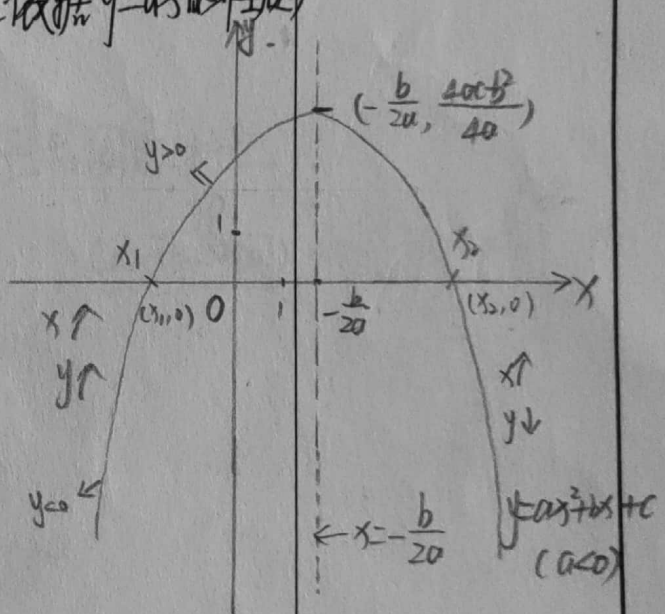 y
(-b/2a, 4ac-b²/4a)
y>0
1
x₁
x₂
x
(x₁,0)
0
1
-b/2a
(x₂,0)
x↑
y↑
x↑
y↓
y<0
←x=-b/2a
y=ax²+bx+c
(a<0)